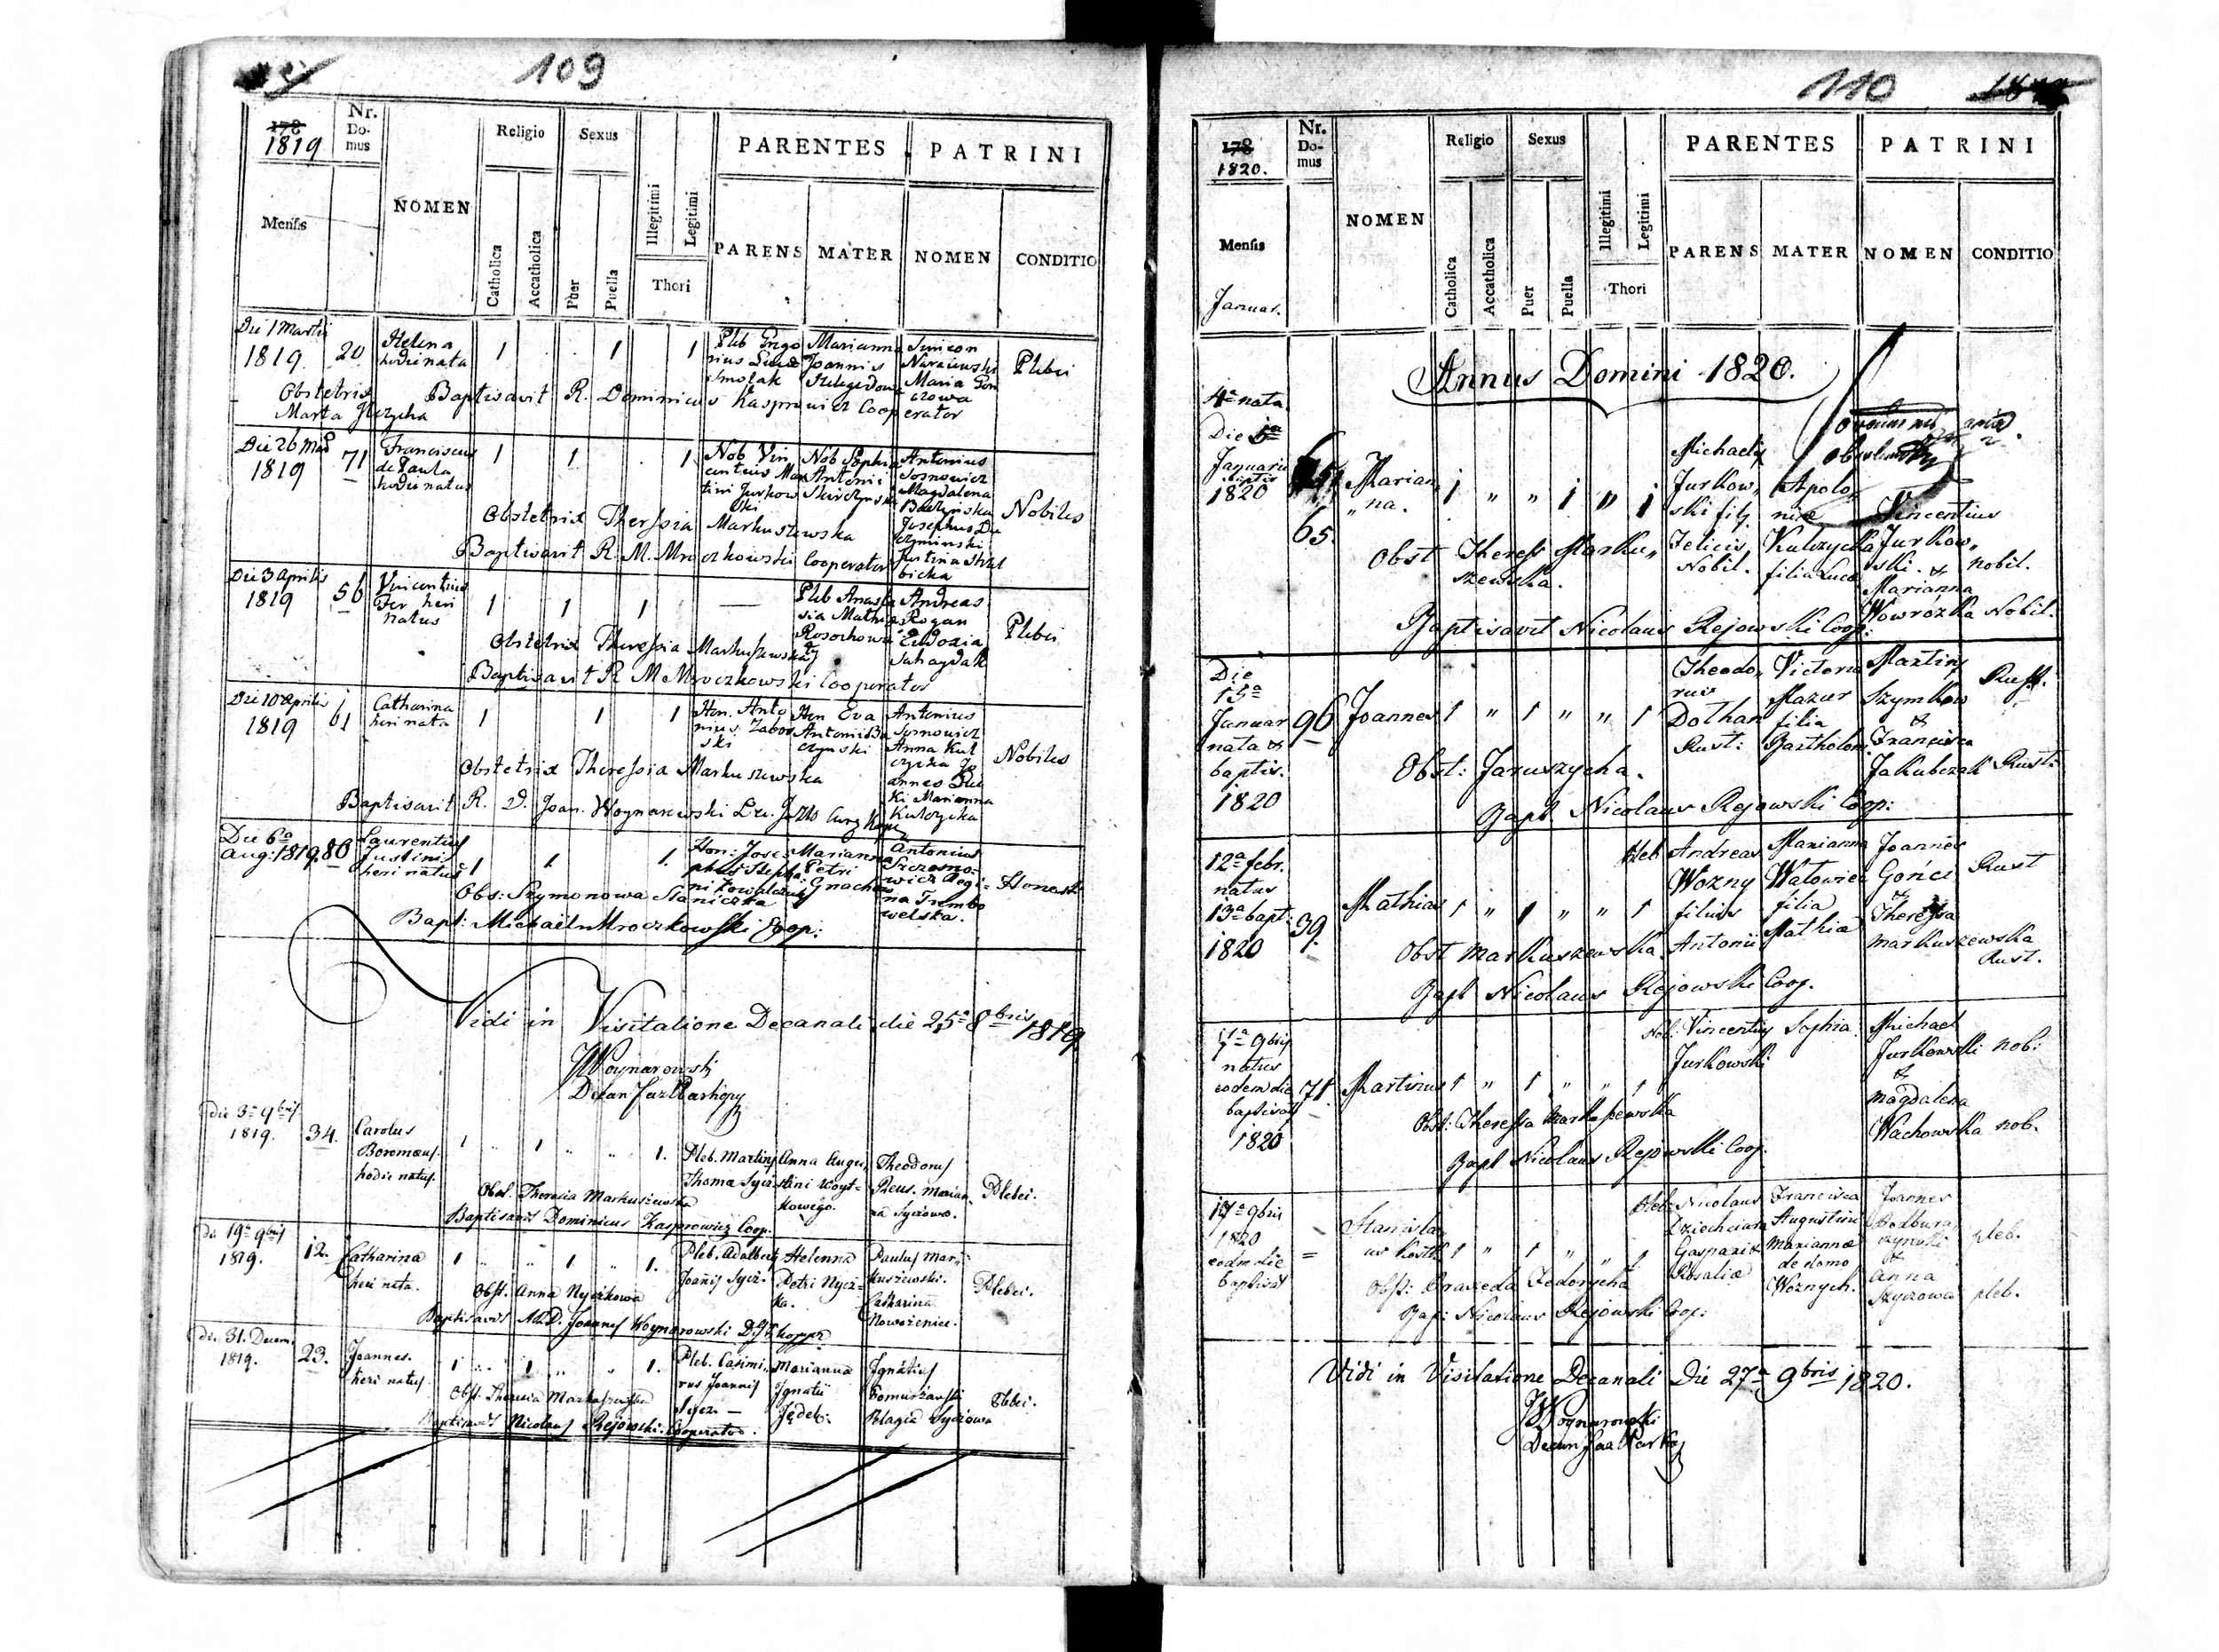 109
178
1819
Nr. Domus
NOMEN
Religio
Sexus
PARENTES
PATRINI
Mensis
Catholica
Accatholica
Puer
Puella
Illegitimi
Legitimi
Thori
PARENS
MATER
NOMEN
CONDITIO
Die 1 Martii
1819
20
Helena
hodie nata
1
1
1
Pleb Grigo
rius
Smolak
Marianna
Joannis
Simeon
Maria
Plebei
Obstetrix
Marta
Baptisavit R. Dominicus Kasprowicz Cooperator
Die 26 Mar
1819
71
Franciscus
de Paula
hodie natus
1
1
1
Nob Vin
centius Mar
tini Jurkow
ski
Nob Sophia
Antonii
Antonius
Sosnowicz
Magdalena
Josephus
Justina
bicka
Nobiles
Obstetrix Theressia Markuszewska
Baptisavit R. M. Mroczkowski Cooperator
Die 3 Aprilis
1819
56
Vincentius
Fer heri
natus
1
1
1
—
Pleb Anasta
sia Mathi
Rosochowa
Andreas
Rogan
Eudoxia
Sahaydak
Plebei
Obstetrix Theressia Markuszewska
Baptisavit R M Mroczkowski Cooperator
Die 10 Aprilis
1819
61
Catharina
heri nata
1
1
1
Hon. Anto
nius Zabor
ski
Hon Eva
Antonii Ba
czynski
Antonius
Sosnowicz
Anna Kul
czycka Jo
annes
ki Marianna
Kulczycka
Nobiles
Obstetrix Theressia Markuszewska
Baptisavit R. D. Joan. Woynarowski
Die 6a
Aug: 1819
80
Laurentius
Justini
heri natus
1
1
1.
Hon: Jose-
phus Stepha-
ni Kowalczuk
Marianna
Petri
Antonius
Sczesno-
wicz Aegi-
na Trembo
welska.
Honesti
Obs: Szymonowa Staniczka
Bapt: Michaël Mroczkowski Coop:
Vidi in Visitatione Decanali die 25a 8bris 1819
JWoynarowski
Die 3a 9bris
1819.
34.
Carolus
Boromæus
hodie natus.
1
1
1.
Pleb. Martinus
Thoma Sycz
Anna Augu
stini Woyt-
kowego.
Theodorus
Reus. Marian
na Syczowa.
Plebei.
Obst. Theresia Markuszewska
Baptisavit Dominicus Kasprowicz Coop.
Die 19a 9bris
1819.
12.
Catharina
heri nata.
1
1
1.
Pleb. Adalbertus
Joanis Sycz.
Helenna
Petri Nycz-
ka.
Paulus Mar-
kuszewski.
Catharina
Plebei.
Obst. Anna Nyczkowa
Baptisavit A.R.D. Joannes Woynarowski
die 31. Decem.
1819.
23.
Joannes.
heri natus.
1
1
1.
Pleb. Casimi-
rus Joannis
Sycz. —
Marianna
Ignatii
Ignatius
Pelagia Syczowa
Plebei.
Obst. Theresia Markuszewska
Baptisavit Nicolaus Rejowski. Cooperator.
110
178
1820.
Nr. Domus
NOMEN
Religio
Sexus
PARENTES
PATRINI
Mensis
Catholica
Accatholica
Puer
Puella
Illegitimi
Legitimi
Thori
PARENS
MATER
NOMEN
CONDITIO
Januar.
Annus Domini 1820.
4a nata
Die 5a
Januarii
1820
65.
Marian
na.
1 " " 1 " 1
Michaelis
Jurkow,
ski filj
Felicis
Nobil.
Apolo,
nia
Kulczycka
filia Lucæ
Vincentius
Jurkow,
ski. &
Marianna
Woworózka
nobil.
Nobil.
Obst Theress Marku,
szewska.
Baptisavit Nicolaus Rejowski Coop:
Die
15a
Januar
nata &
baptis.
1820
96
Joannes
1 " 1 " " 1
Theodo,
rus
Dothan
Rust:
Victoria
Mazur
filia
Bartholom
Martinus
Szymkow
&
Francisca
Jakubczak
Rust.
Rust:
Obst: Jaruszycha.
Bapt Nicolaus Rejowski Coop:
12a febr.
natus
13a bapt:
1820
39.
Mathias
1 " 1 " " 1
Pleb
Andreas
Wozny
filius
Antonii
Marianna
Watowicz
filia
Mathiæ
Joannes
Gońci
&
Theressa
Markuszewska
Rust
Rust.
Obst Markuszewska
Bapt Nicolaus Rejowski Coop.
9bris
natus
eodem die
baptisat
1820
71.
Martinus
1 " 1 " " 1
Nob: Vincentius
Jurkowski
Sophia
Michael
Jurkowski
&
Magdalena
Wachowska
nob:
nob.
Obst: Theressa Markuszewska
Bapt Nicolaus Rejowski Coop.
17a 9bris
1820
eodem die
baptisat
=
Stanisla,
us Kostka
1 " 1 " " 1
Pleb: Nicolaus
Dziechciarz
Gaspari &
Rosaliæ
Francisca
Augustini
Mariannæ
de domo
Woznych.
Joannes
&
Anna
Syczowa
pleb.
pleb.
Obst: Praxeda Fedorycha
Bap: Nicolaus Rejowski Coop:
Vidi in Visitatione Decanali Die 27a 9bris 1820.
JWoynarowski